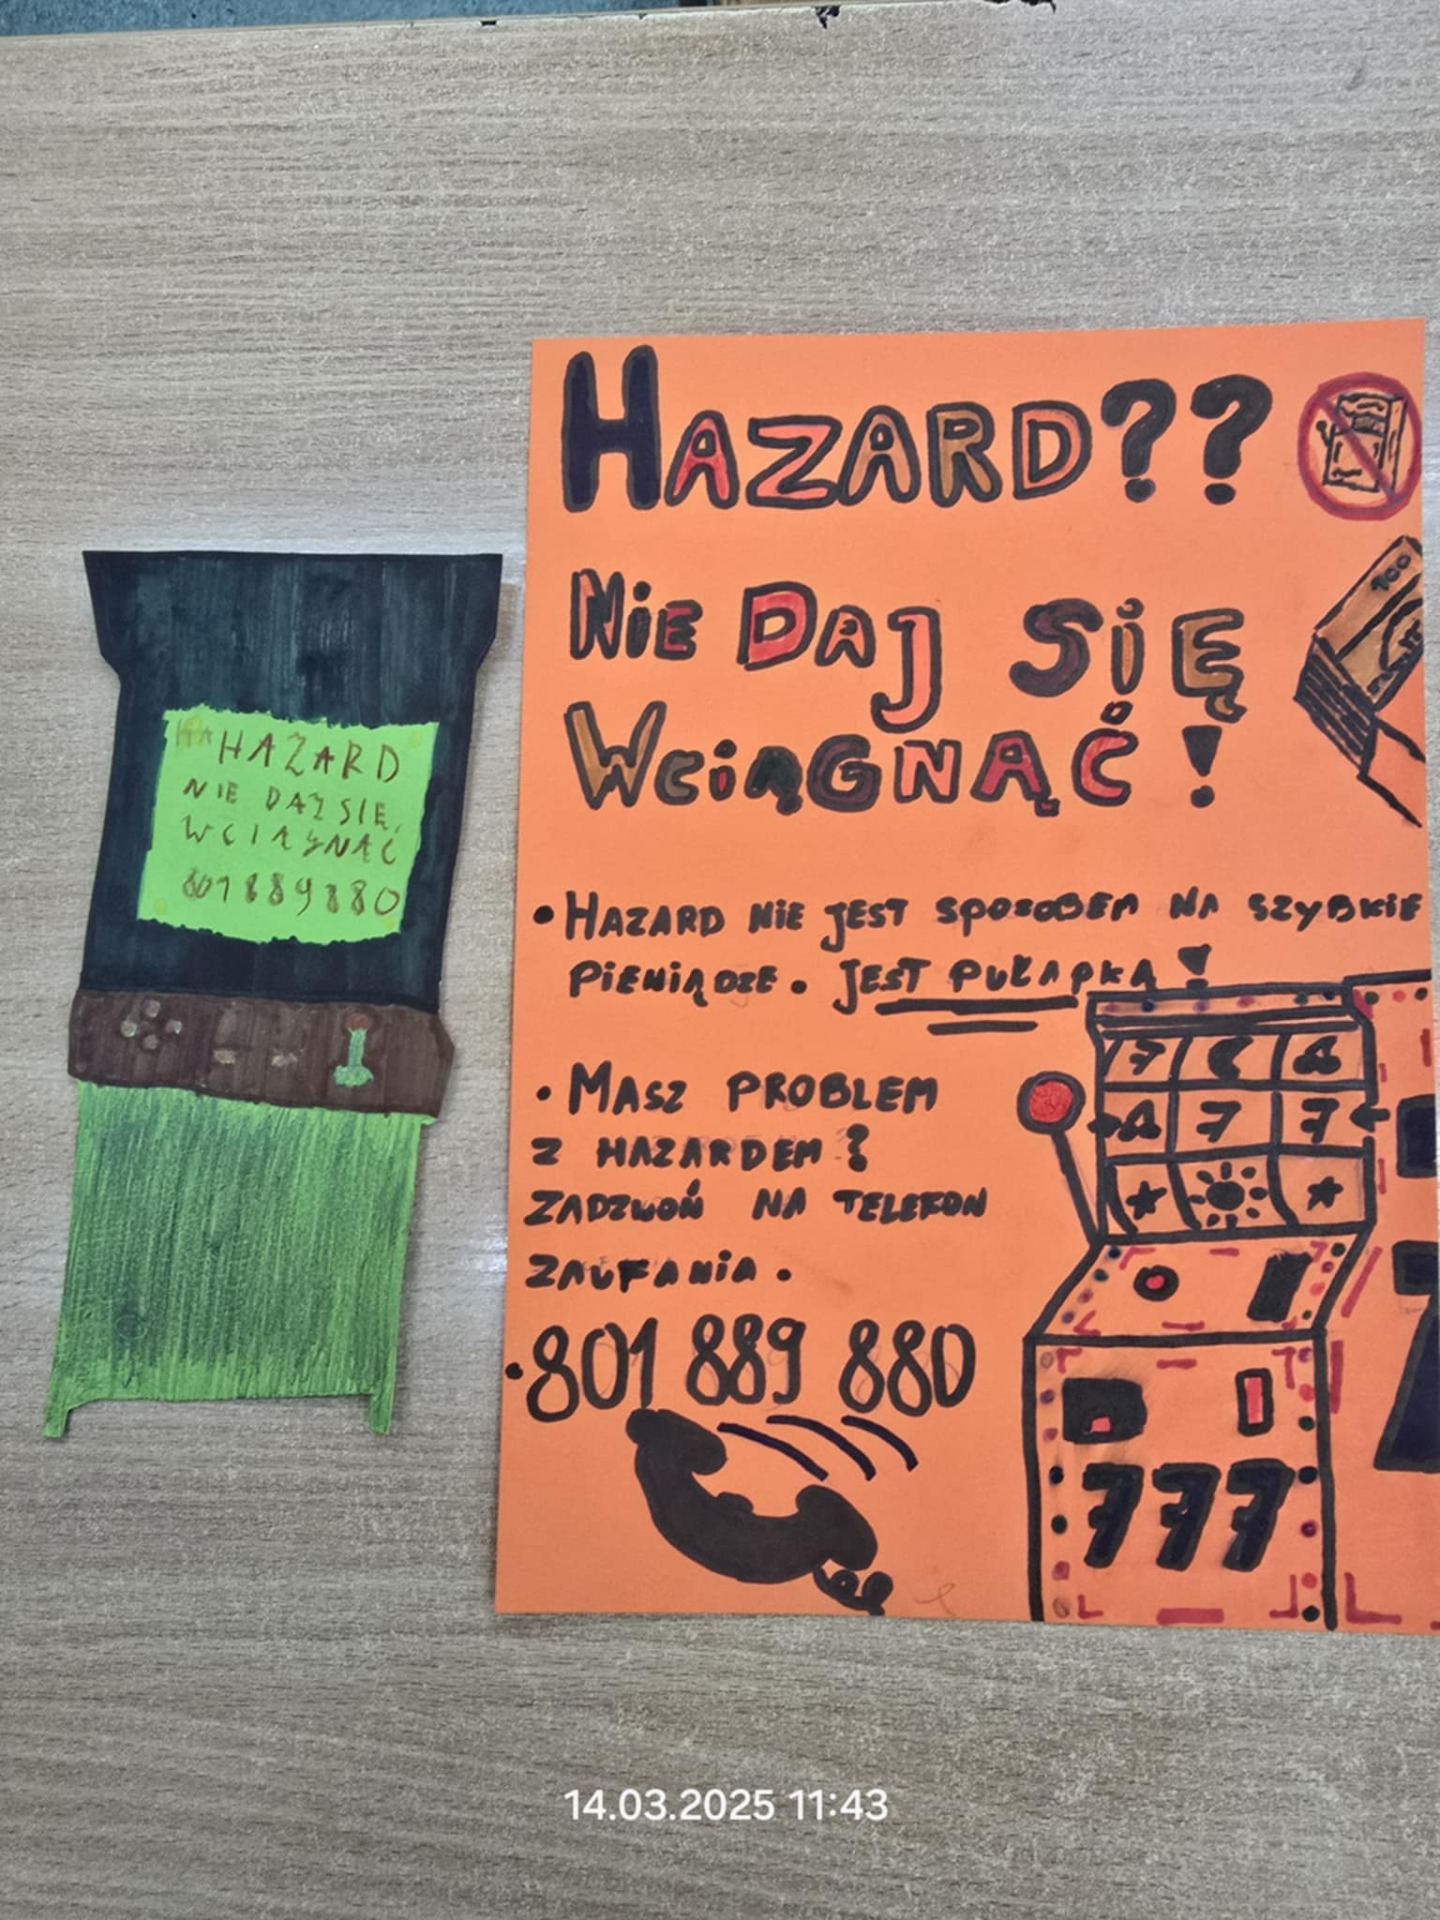 HAZARD
NIE DAJ SIĘ
WCIĄGNĄĆ
801889880
HAZARD??
NIE DAJ SIĘ
WCIĄGNĄĆ!
100
• HAZARD NIE JEST SPOSOBEM NA SZYBKIE
PIENIĄDZE. JEST PUŁAPKĄ!
• MASZ PROBLEM
Z HAZARDEM?
ZADZWOŃ NA TELEFON
ZAUFANIA.
• 801 889 880
7 7
777
14.03.2025 11:43